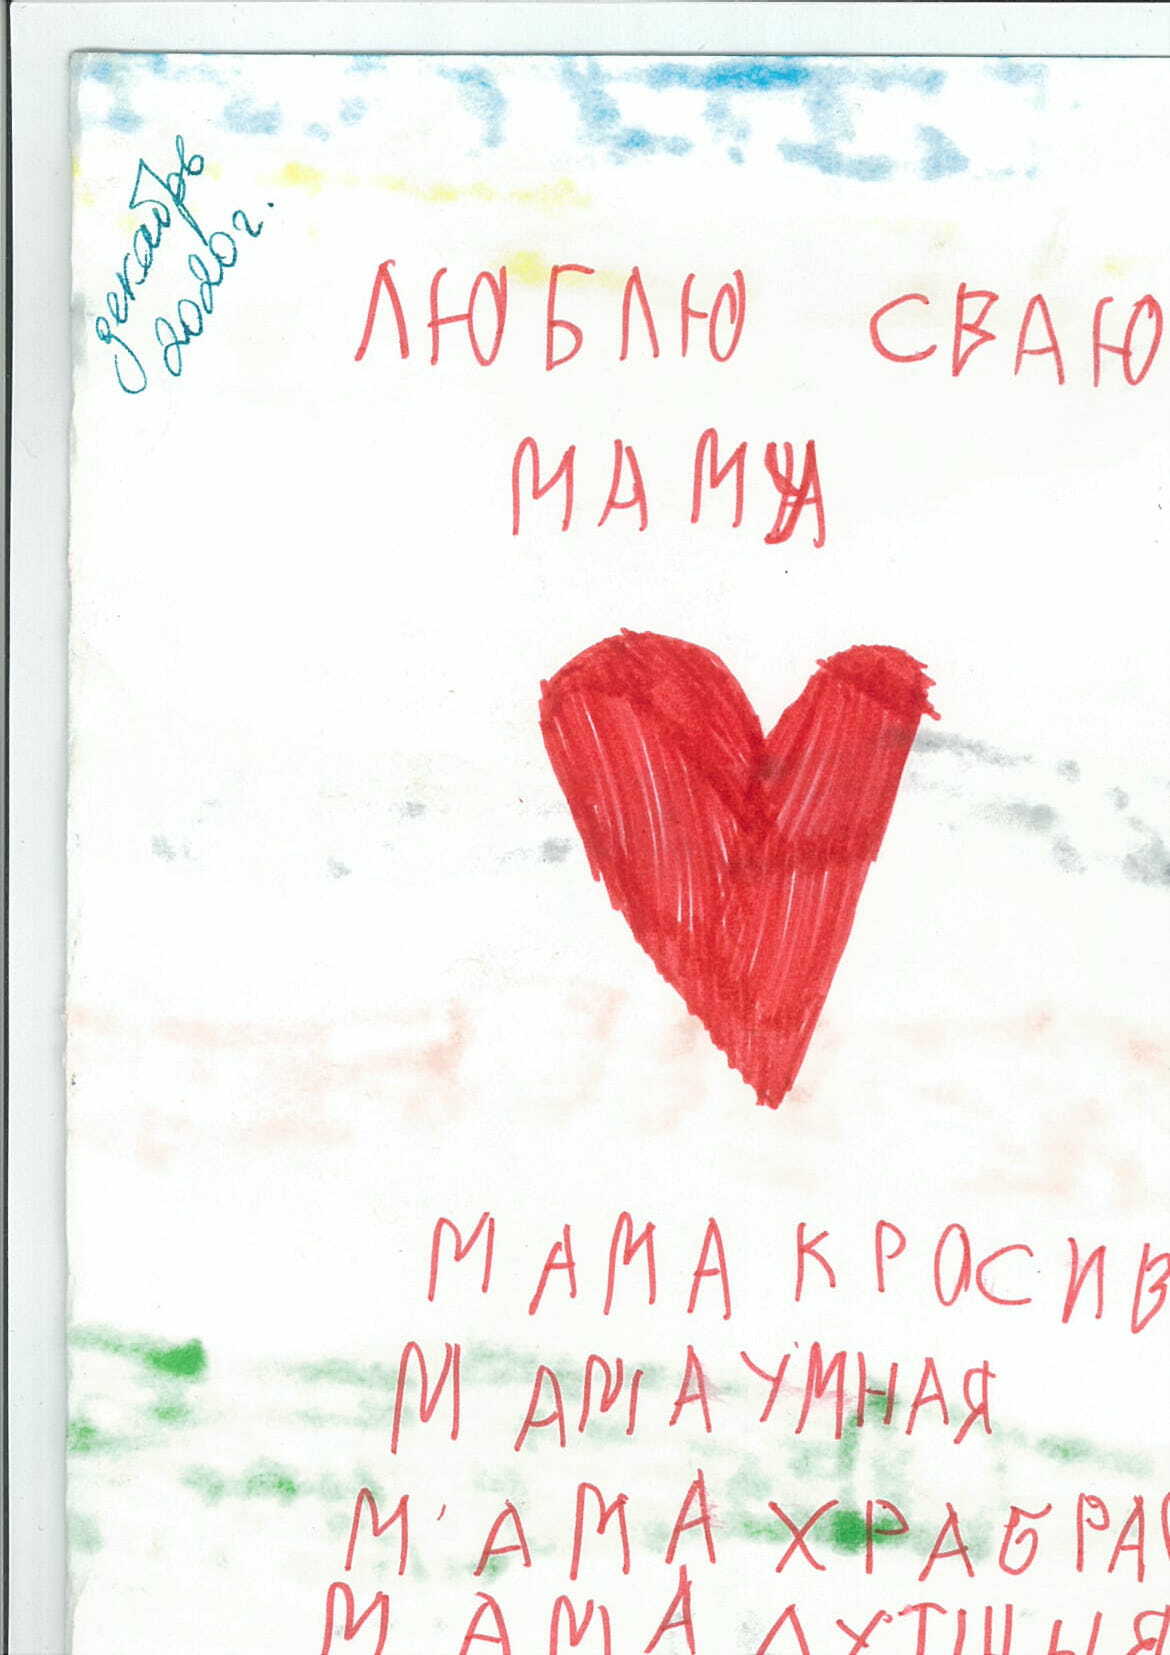 декабрь
2020 г.
ЛЮБЛЮ СВАЮ
МАМУ
МАМА КРОСИВ
МАМА УМНАЯ
МАМА ХРАБРА
МАМА ЛУТШЫЯ